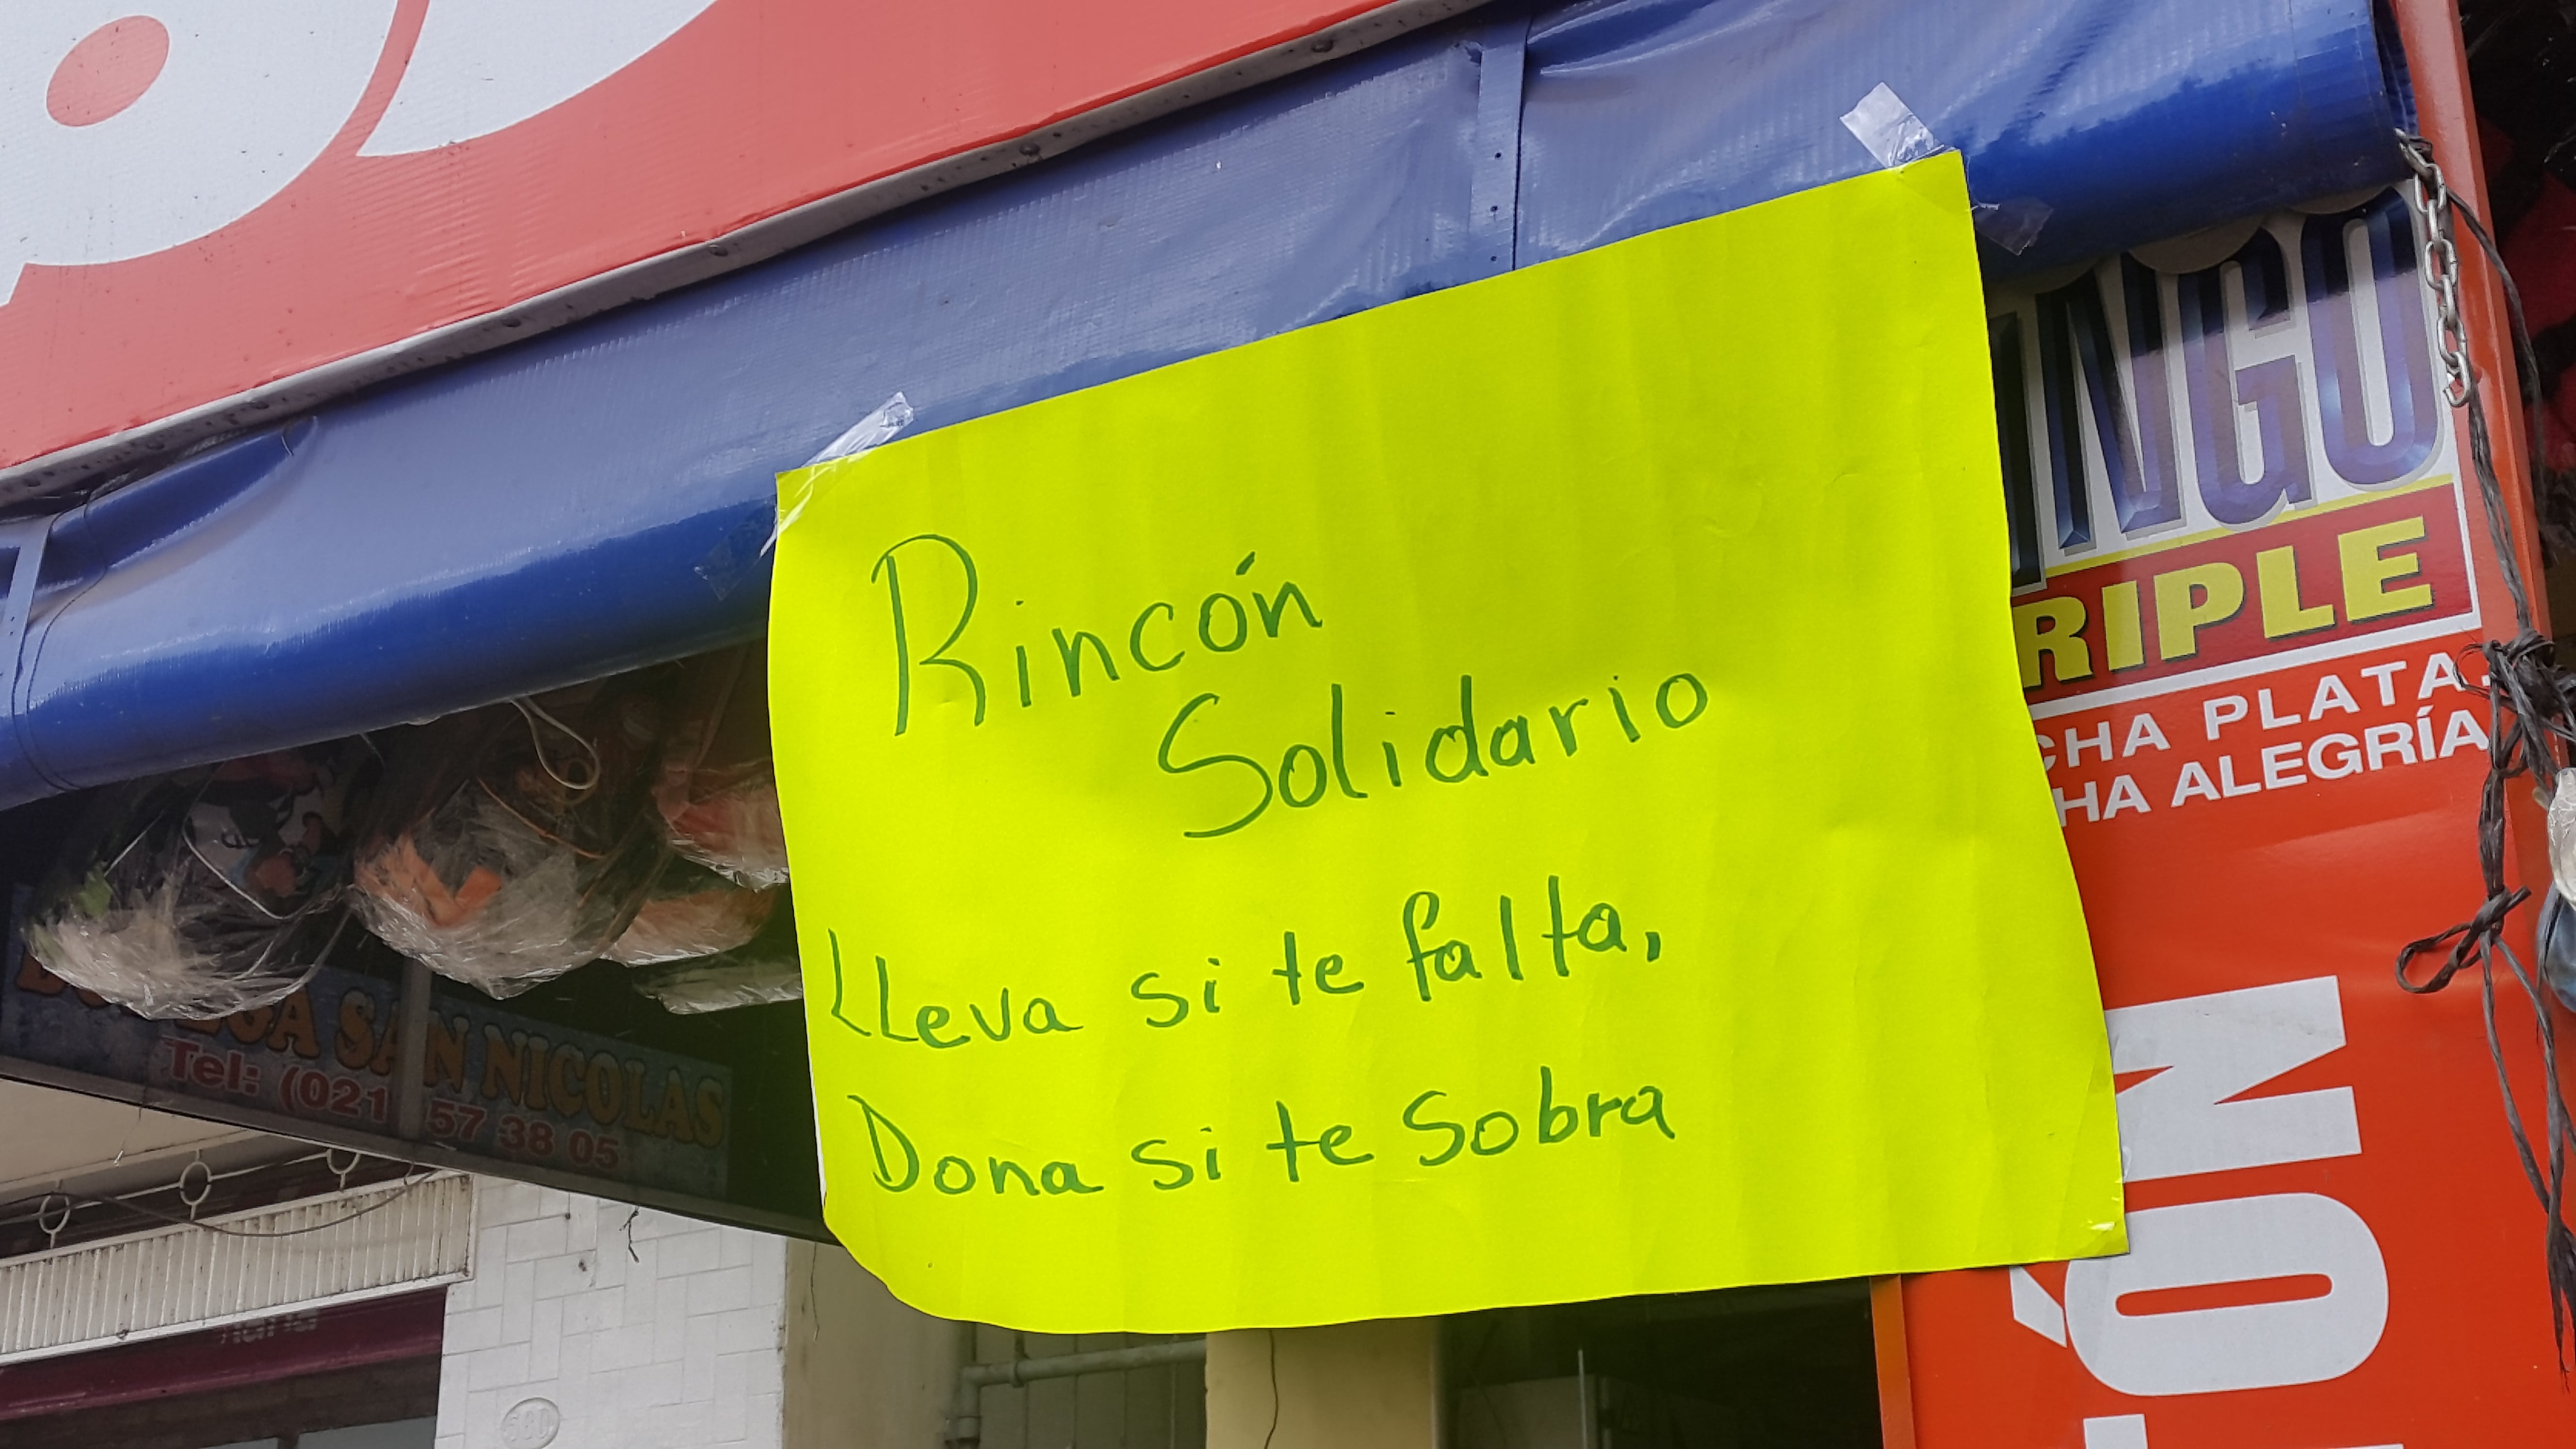 Rincón
Solidario
Lleva si te falta,
Dona si te Sobra
RIPLE
CHA PLATA.
HA ALEGRÍA
SAN NICOLAS
Tel: (021 57 38 05
580
ÓN